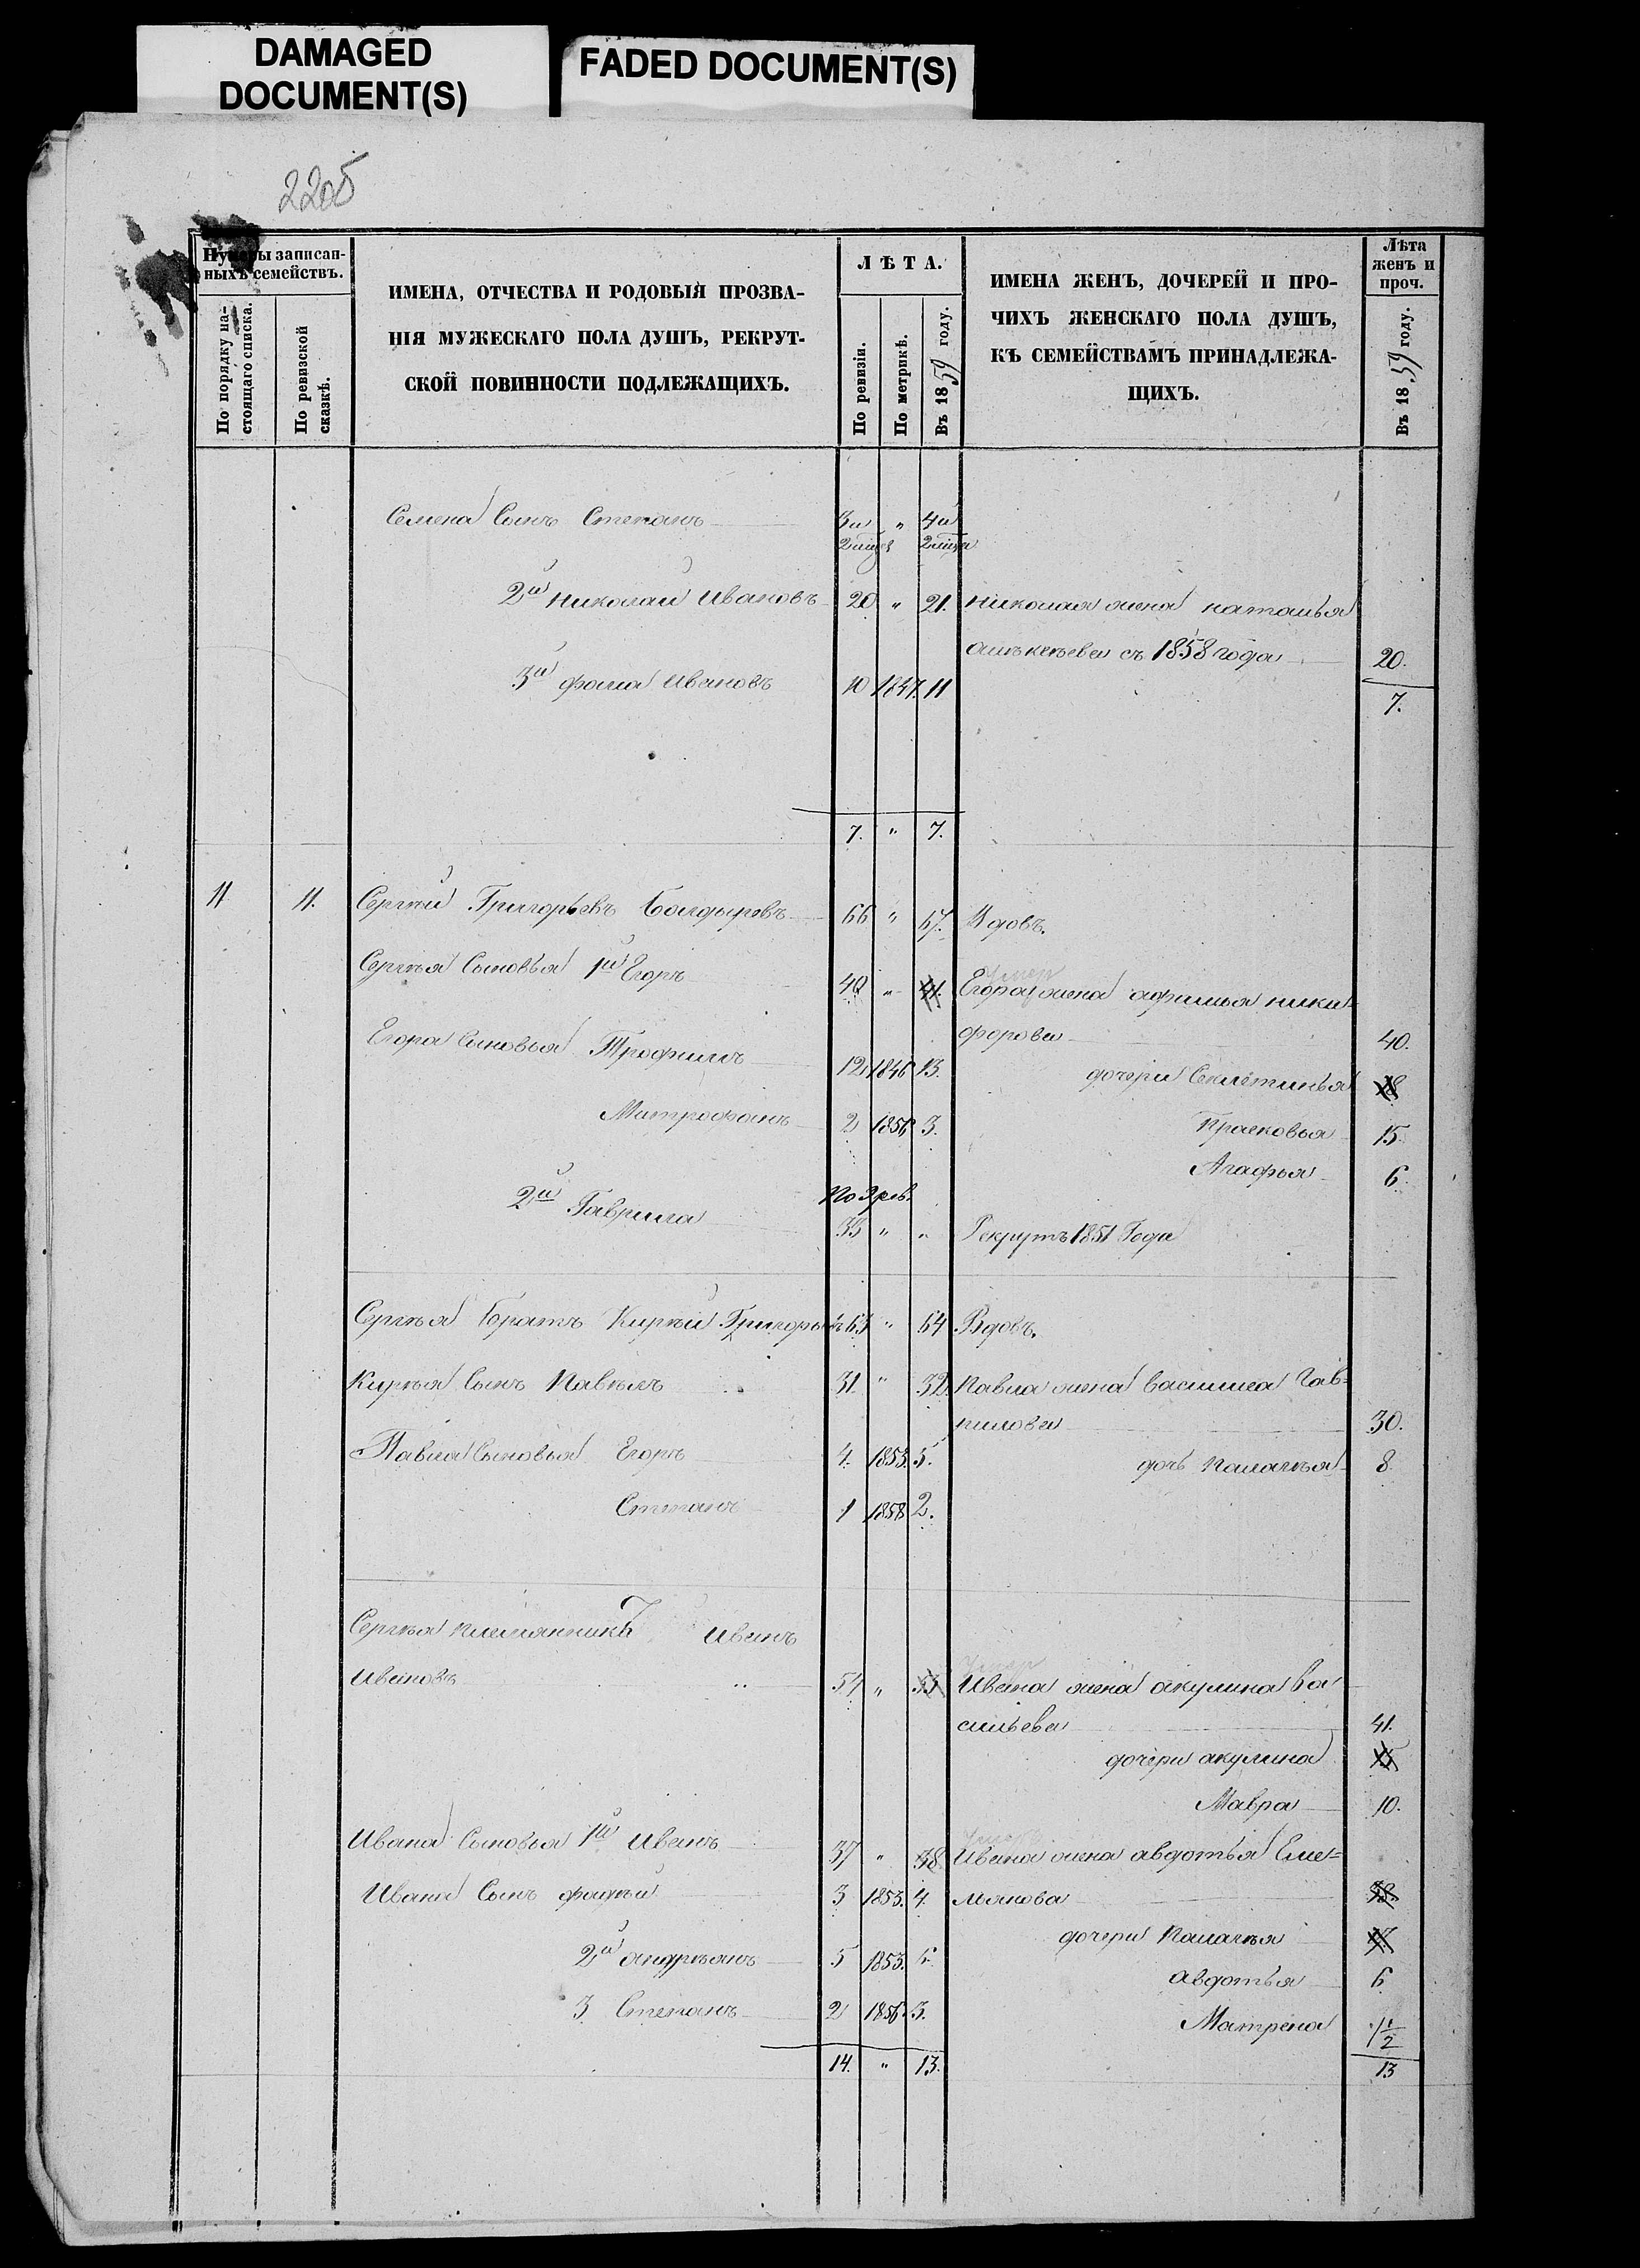 DAMAGED
DOCUMENT(S)
FADED DOCUMENT(S)
2205
Нумеры записан-
ныхъ семействъ.
По порядку на-
стоящаго списка.
По ревизской
сказкѣ.
ИМЕНА, ОТЧЕСТВА И РОДОВЫЯ ПРОЗВА-
НІЯ МУЖЕСКАГО ПОЛА ДУШЪ, РЕКРУТ-
СКОЙ ПОВИННОСТИ ПОДЛЕЖАЩИХЪ.
ЛѢТА.
По ревизіи.
По метрикѣ.
Въ 1859 году.
ИМЕНА ЖЕНЪ, ДОЧЕРЕЙ И ПРО-
ЧИХЪ ЖЕНСКАГО ПОЛА ДУШЪ,
КЪ СЕМЕЙСТВАМЪ ПРИНАДЛЕЖА-
ЩИХЪ.
Лѣта
женъ и
проч.
Въ 1859 году.
Семена Сынъ Степанъ 3и " 4и
2й Николай Ивановъ 20 " 21. Николая жена Наталья
съ 1858 года 20.
3й Фома Ивановъ 10 1847. 11
7.
7. " 7.
11 11. Сергѣй Григорьевъ Болдыревъ 66 " 67. Вдовъ.
Сергѣя Сыновья 1й Егоръ 40 " 41. Егора жена Афимья Ники-
умер
форова 40.
Егора Сыновья Трофимъ 12 1846 13.
дочери Секлетинья 18
Митрофанъ 2 1856 3.
Прасковья 15.
Агафья 6.
2й Гаврила 33 " " Рекрутъ 1851 Года
Сергѣя Братъ Кирѣй Григорьевъ 63 " 64 Вдовъ.
Кирѣя Сынъ Павѣлъ 31. " 32. Павла жена Василиса Гав-
рилова 30.
Павла Сыновья Егоръ 4. 1853. 5.
дочь Палагѣя 8.
Степанъ 1 1858 2.
Сергѣя племянникъ Иванъ
Ивановъ 54 " 55 Ивана жена Акулина Ва
умер
сильева 41.
дочери Акулина 15
Мавра 10.
Ивана Сыновья 1й Иванъ 37 " 38 Ивана жена Авдотья Еме=
Ивана Сынъ Фадѣй 3 1853. 4. льянова 38.
дочери Палагѣя 17
2й Андрѣянъ 5 1853. 6.
Авдотья 6.
3 Степанъ 2 1856. 3.
Матрена 1/2
14. " 13.
13